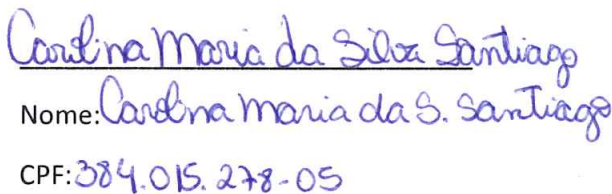 Carolina Maria da Silva Santiago
Nome: Carolina Maria da S. Santiago
CPF: 384.015.278-05